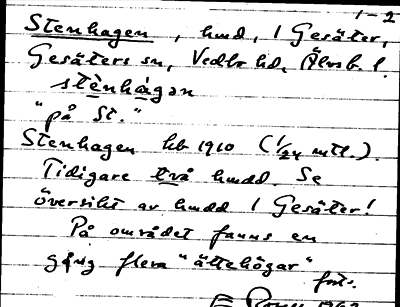 1-2
Stenhagen, hmd, 1 Gesäter,
Gesäters sn, Vedbo hd, Älvsb. l.
stènhàgən
"på St."
Stenhagen hb 1910 (1/24 mtl.).
Tidigare två hmdd. Se
översikt av hmdd 1 Gesäter!
På området fanns en
gång flera "ättehögar"
forts.